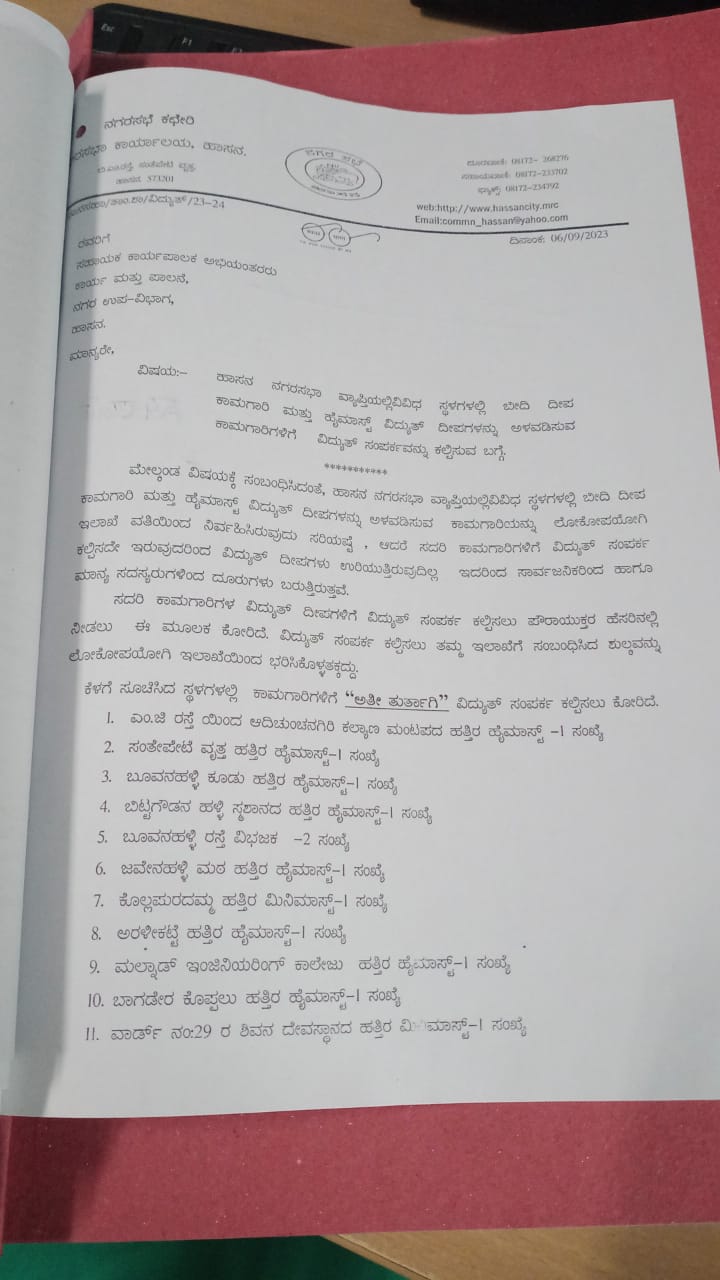 ನಗರಸಭೆ ಕಛೇರಿ
ರಸಭಾ ಕಾರ್ಯಾಲಯ, ಹಾಸನ.
ಬಿ.ಎಂ.ರಸ್ತೆ, ಸಂತೇಪೇಟೆ ವೃತ್ತ
ಹಾಸನ 573201
ನಗರ ಸಭೆ
ದೂರವಾಣಿ: 08172- 268276
ಸಹಾಯವಾಣಿ: 08172-233702
ಫ್ಯಾಕ್ಸ್: 08172-234792
web:http://www.hassancity.mrc
Email:commn_hassan@yahoo.com
/ವಿದ್ಯುತ್/23-24
ದಿನಾಂಕ: 06/09/2023
ರವರಿಗೆ
ಸಹಾಯಕ ಕಾರ್ಯಪಾಲಕ ಅಭಿಯಂತರರು
ಕಾರ್ಯ ಮತ್ತು ಪಾಲನೆ,
ನಗರ ಉಪ-ವಿಭಾಗ,
ಹಾಸನ.
ಮಾನ್ಯರೇ,
ವಿಷಯ:- ಹಾಸನ ನಗರಸಭಾ ವ್ಯಾಪ್ತಿಯಲ್ಲಿವಿವಿಧ ಸ್ಥಳಗಳಲ್ಲಿ ಬೀದಿ ದೀಪ
ಕಾಮಗಾರಿ ಮತ್ತು ಹೈಮಾಸ್ಟ್ ವಿದ್ಯುತ್ ದೀಪಗಳನ್ನು ಅಳವಡಿಸುವ
ಕಾಮಗಾರಿಗಳಿಗೆ ವಿದ್ಯುತ್ ಸಂಪರ್ಕವನ್ನು ಕಲ್ಪಿಸುವ ಬಗ್ಗೆ.
***********
ಮೇಲ್ಕಂಡ ವಿಷಯಕ್ಕೆ ಸಂಬಂಧಿಸಿದಂತೆ, ಹಾಸನ ನಗರಸಭಾ ವ್ಯಾಪ್ತಿಯಲ್ಲಿವಿವಿಧ ಸ್ಥಳಗಳಲ್ಲಿ ಬೀದಿ ದೀಪ
ಕಾಮಗಾರಿ ಮತ್ತು ಹೈಮಾಸ್ಟ್ ವಿದ್ಯುತ್ ದೀಪಗಳನ್ನು ಅಳವಡಿಸುವ ಕಾಮಗಾರಿಯನ್ನು ಲೋಕೋಪಯೋಗಿ
ಇಲಾಖೆ ವತಿಯಿಂದ ನಿರ್ವಹಿಸಿರುವುದು ಸರಿಯಷ್ಟೆ , ಆದರೆ ಸದರಿ ಕಾಮಗಾರಿಗಳಿಗೆ ವಿದ್ಯುತ್ ಸಂಪರ್ಕ
ಕಲ್ಪಿಸದೇ ಇರುವುದರಿಂದ ವಿದ್ಯುತ್ ದೀಪಗಳು ಉರಿಯುತ್ತಿರುವುದಿಲ್ಲ ಇದರಿಂದ ಸಾರ್ವಜನಿಕರಿಂದ ಹಾಗೂ
ಮಾನ್ಯ ಸದಸ್ಯರುಗಳಿಂದ ದೂರುಗಳು ಬರುತ್ತಿರುತ್ತವೆ.
ಸದರಿ ಕಾಮಗಾರಿಗಳ ವಿದ್ಯುತ್ ದೀಪಗಳಿಗೆ ವಿದ್ಯುತ್ ಸಂಪರ್ಕ ಕಲ್ಪಿಸಲು ಪೌರಾಯುಕ್ತರ ಹೆಸರಿನಲ್ಲಿ
ನೀಡಲು ಈ ಮೂಲಕ ಕೋರಿದೆ. ವಿದ್ಯುತ್ ಸಂಪರ್ಕ ಕಲ್ಪಿಸಲು ತಮ್ಮ ಇಲಾಖೆಗೆ ಸಂಬಂಧಿಸಿದ ಶುಲ್ಕವನ್ನು
ಲೋಕೋಪಯೋಗಿ ಇಲಾಖೆಯಿಂದ ಭರಿಸಿಕೊಳ್ಳತಕ್ಕದ್ದು.
ಕೆಳಗೆ ಸೂಚಿಸಿದ ಸ್ಥಳಗಳಲ್ಲಿ ಕಾಮಗಾರಿಗಳಿಗೆ "ಅತೀ ತುರ್ತಾಗಿ" ವಿದ್ಯುತ್ ಸಂಪರ್ಕ ಕಲ್ಪಿಸಲು ಕೋರಿದೆ.
1. ಎಂ.ಜಿ ರಸ್ತೆ ಯಿಂದ ಆದಿಚುಂಚನಗಿರಿ ಕಲ್ಯಾಣ ಮಂಟಪದ ಹತ್ತಿರ ಹೈಮಾಸ್ಟ್ -1 ಸಂಖ್ಯೆ
2. ಸಂತೇಪೇಟೆ ವೃತ್ತ ಹತ್ತಿರ ಹೈಮಾಸ್ಟ್-1 ಸಂಖ್ಯೆ
3. ಬೂವನಹಳ್ಳಿ ಕೂಡು ಹತ್ತಿರ ಹೈಮಾಸ್ಟ್-1 ಸಂಖ್ಯೆ
4. ಬಿಟ್ಟಗೌಡನ ಹಳ್ಳಿ ಸ್ಮಶಾನದ ಹತ್ತಿರ ಹೈಮಾಸ್ಟ್-1 ಸಂಖ್ಯೆ
5. ಬೂವನಹಳ್ಳಿ ರಸ್ತೆ ವಿಭಜಕ -2 ಸಂಖ್ಯೆ
6. ಜವೇನಹಳ್ಳಿ ಮಠ ಹತ್ತಿರ ಹೈಮಾಸ್ಟ್-1 ಸಂಖ್ಯೆ
7. ಕೊಲ್ಲಾಪುರದಮ್ಮ ಹತ್ತಿರ ಮಿನಿಮಾಸ್ಟ್-1 ಸಂಖ್ಯೆ
8. ಅರಳೀಕಟ್ಟೆ ಹತ್ತಿರ ಹೈಮಾಸ್ಟ್-1 ಸಂಖ್ಯೆ
9. ಮಲ್ನಾಡ್ ಇಂಜಿನಿಯರಿಂಗ್ ಕಾಲೇಜು ಹತ್ತಿರ ಹೈಮಾಸ್ಟ್-1 ಸಂಖ್ಯೆ
10. ಬಾಗಡೇರ ಕೊಪ್ಪಲು ಹತ್ತಿರ ಹೈಮಾಸ್ಟ್-1 ಸಂಖ್ಯೆ
11. ವಾರ್ಡ್ ನಂ:29 ರ ಶಿವನ ದೇವಸ್ಥಾನದ ಹತ್ತಿರ ಮಿನಿಮಾಸ್ಟ್-1 ಸಂಖ್ಯೆ